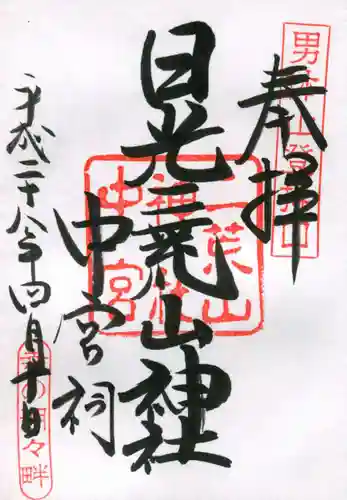 男体山登拝口
奉拝
日光二荒山神社
中宮祠
二荒山
神社
中宮
平成二十八年四月
幸の湖々畔